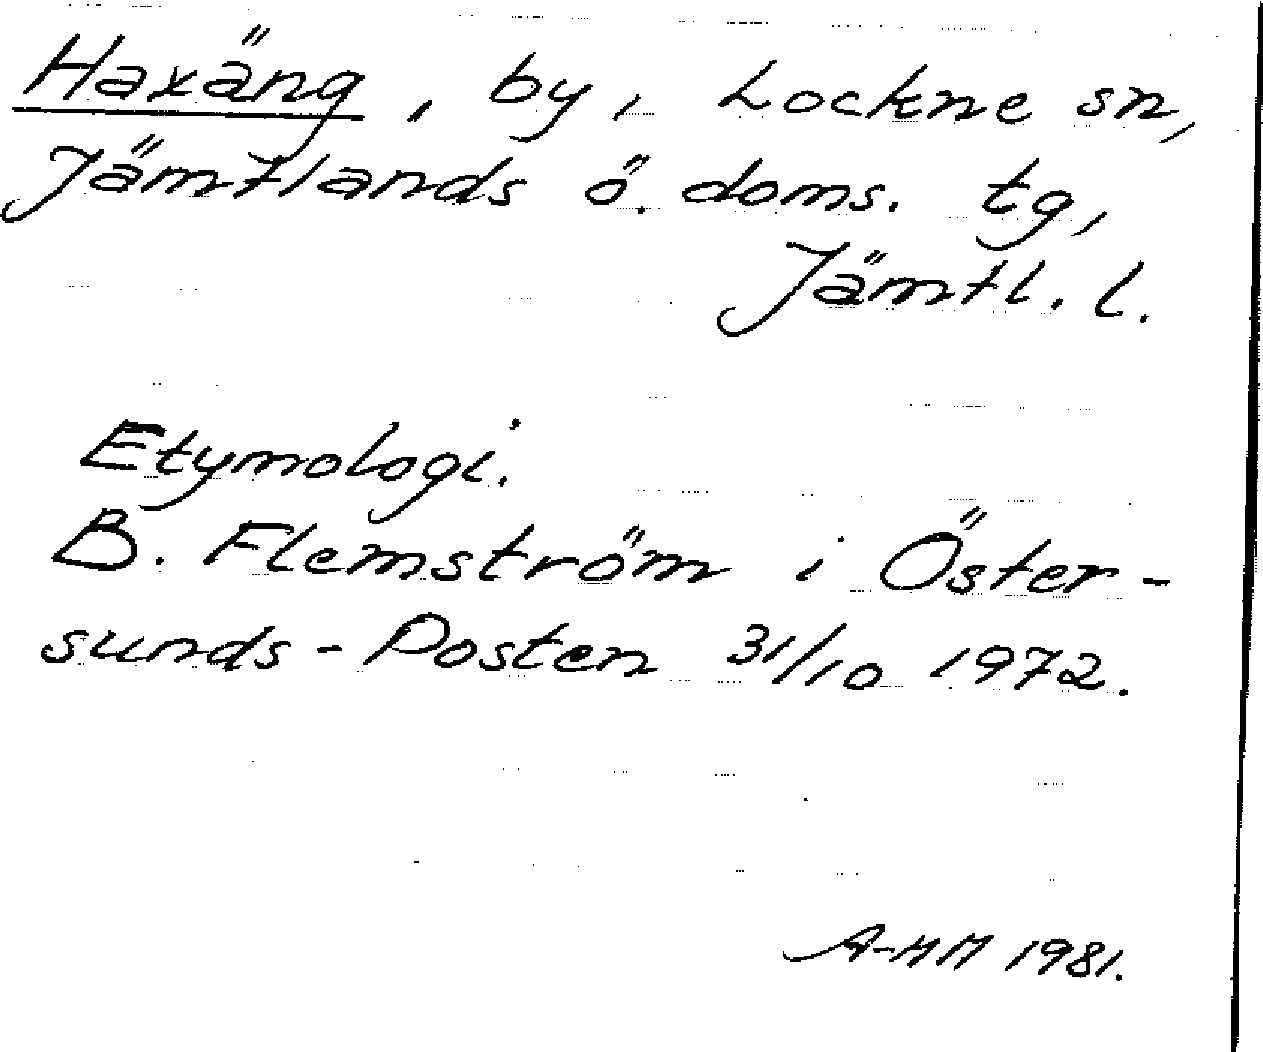 Haxäng, by, Lockne sn,
Jämtlands ö. doms. tg,
Jämtl. l.
Etymologi.
B. Flemström i Öster-
sunds-Posten 31/10 1972.
A-MM 1981.